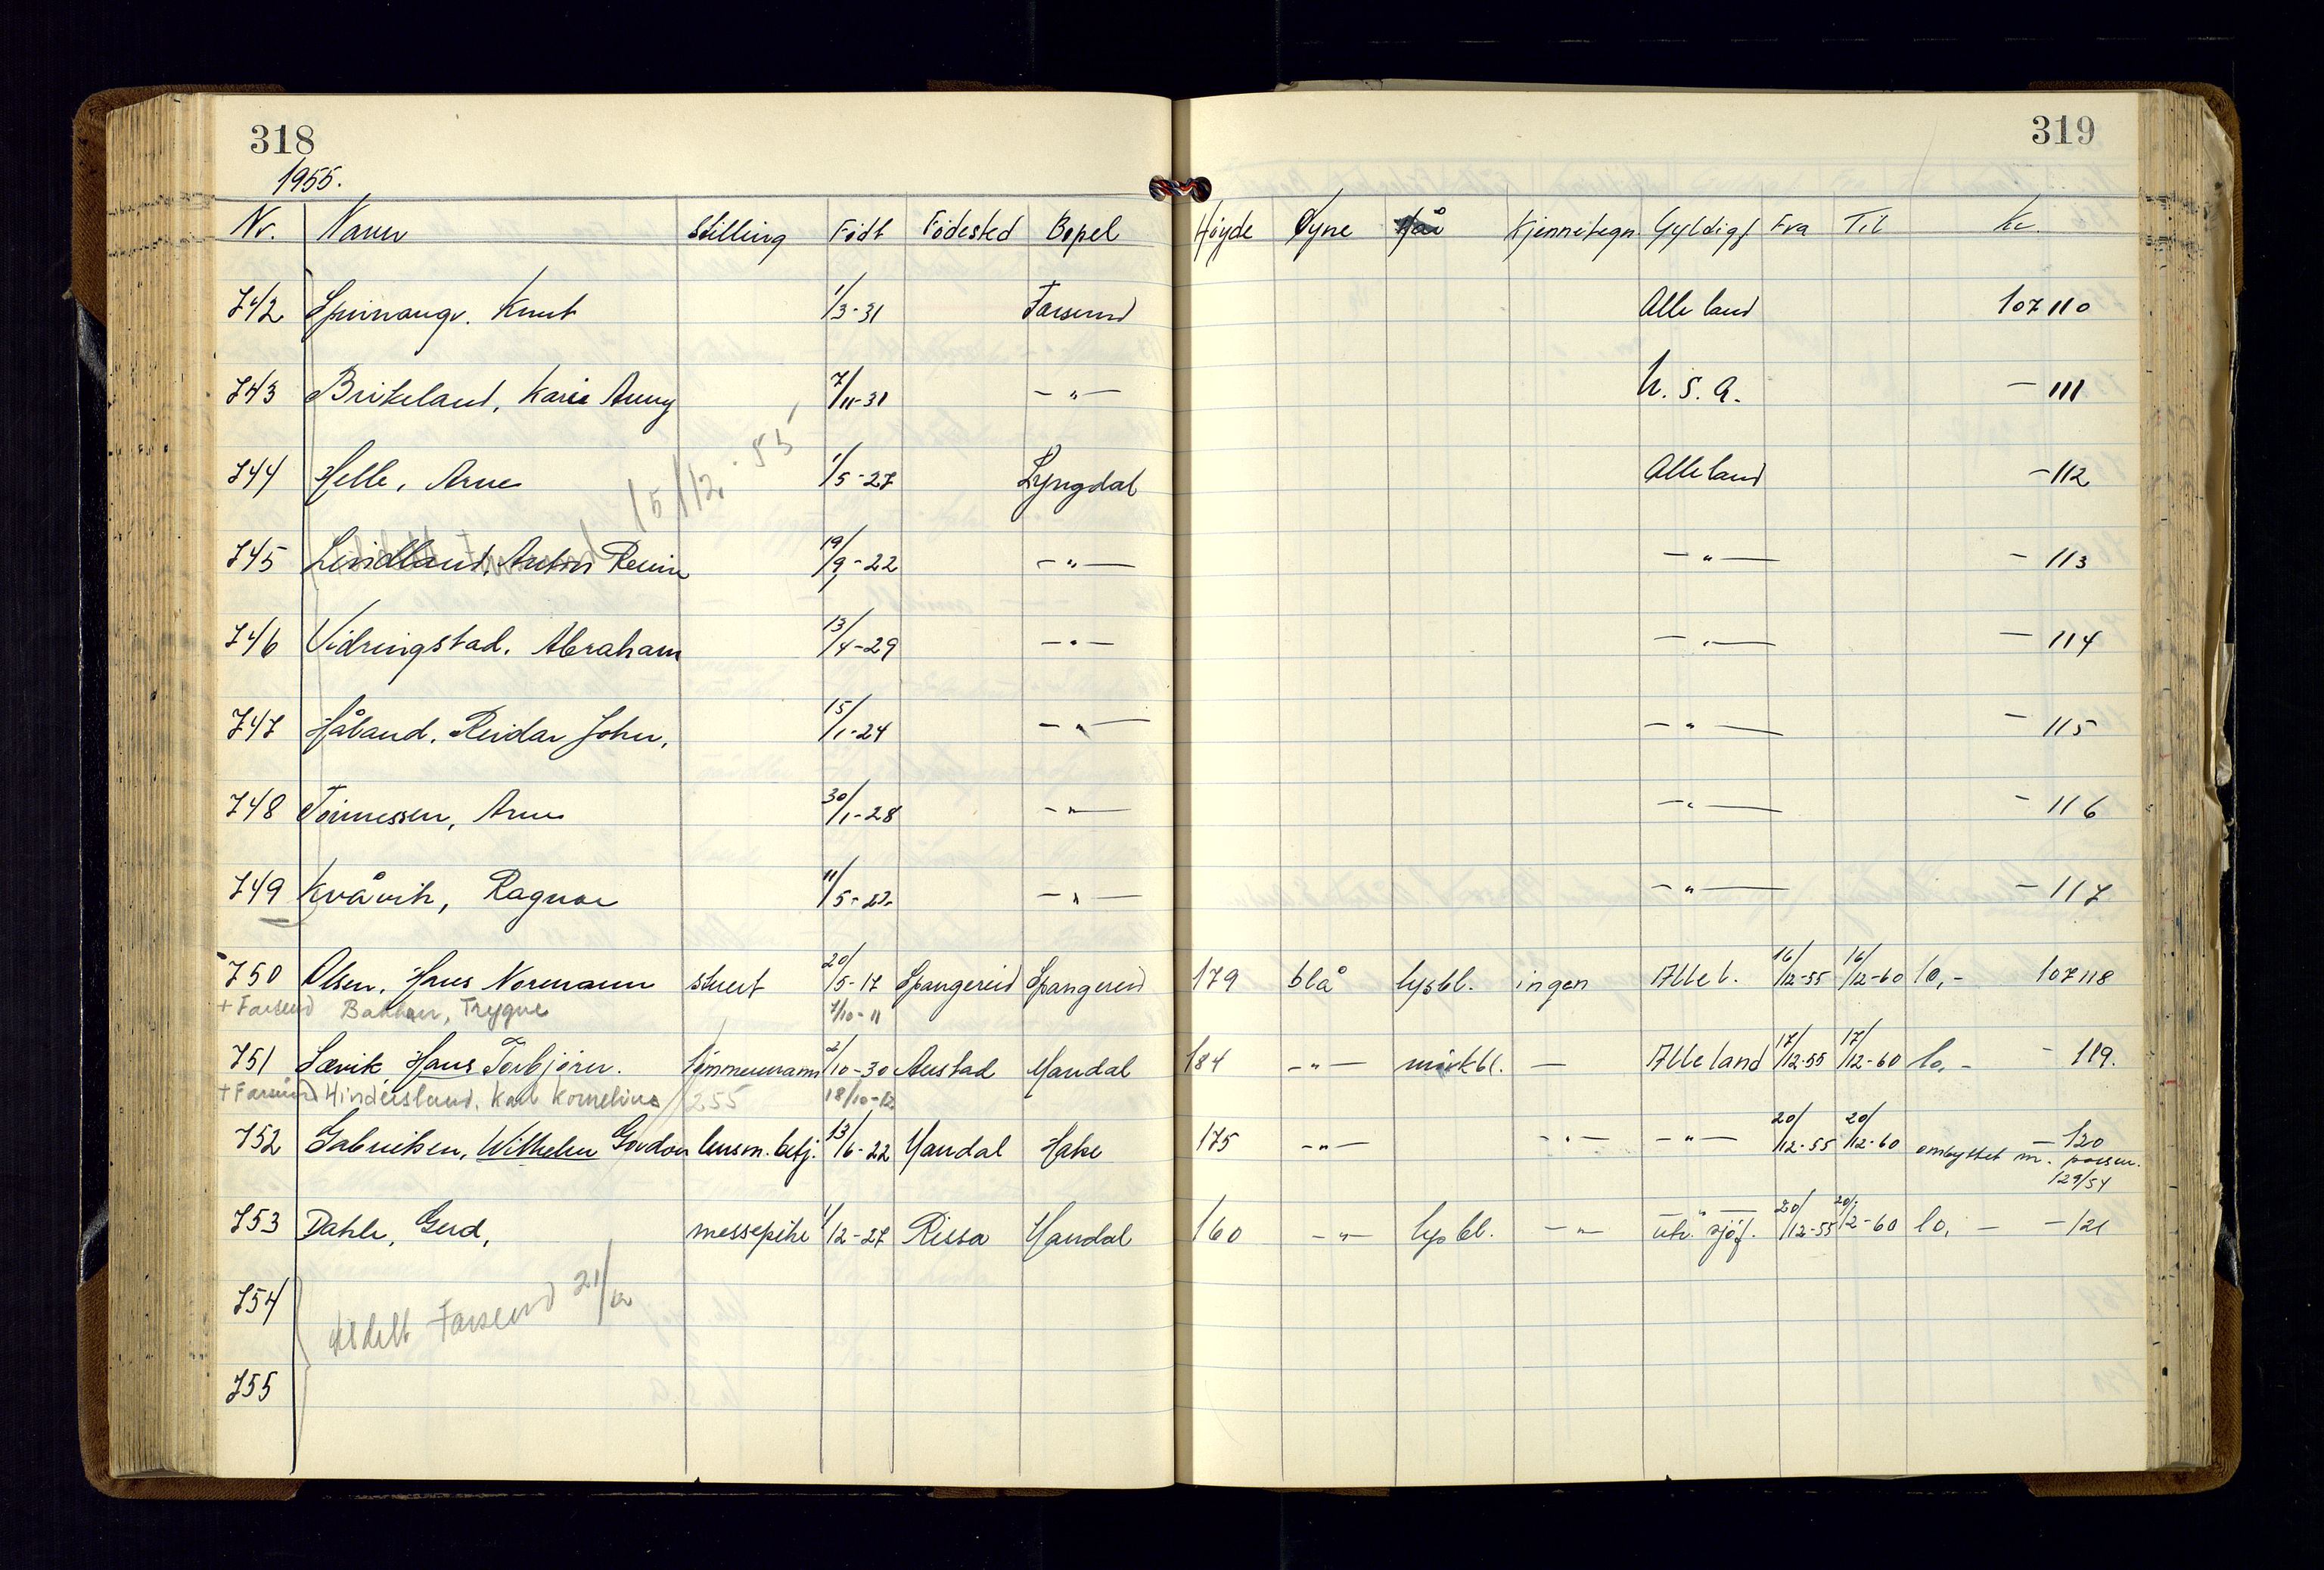 318
319
1955.
Nr. Navn Stilling Födt Födested Bopel Höyde Öyne Hår Kjennetegn Gyldigf Fra Til Kr.
742 Knut 1/3-31 Farsund Alle land 107110
743 Birkeland, Karie Anny 7/11-31 -"- U.S.A. - 111
15/12-55
744 Helle, Arne 1/5-27 Lyngdal Alle land -112
745 Lindland, Anton 19/9-22 -"- -"- - 113
746 Vidringstad, Abraham 13/4-29 -"- -"- - 114
747 Håland, Reidar John, 15/1-24 -"- -"- - 115
748 Tönnessen, Arne 30/1-28 -"- -"- - 116
749 Kvåvik, Ragnar 11/5-22 -"- -"- - 117
750 Olsen, Hans Normann stuert 20/5-17 Spangereid Spangereid 179 blå lysbl. ingen Alle l. 16/12-55 16/12-60 10,- 107118
+ Farsund Bakken, Trygve 7/10-11
751 Lævik, Hans Torbjörn. tömmermann 2/10-30 Austad Mandal 184 -"- mörkbl. — Alle land 17/12-55 17/12-60 10,- - 119.
+ Farsund Hindersland, Karl Kornelius 255 18/10-12
752 Gabrielsen, Wilhelm Gordon lensm. betj. 13/6-22 Mandal Halse 175 -"- -"- -"- 20/12-55 20/12-60 ombyttet m. passnr. 129/54 - 120
753 Dahle, Gerd, messepike 1/12-27 Rissa Mandal 160 -"- lysbl. -"- -"- utv. sjöf. 20/12-55 20/12-60 10,- - 121
754
utdelt Farsund 21/12
755